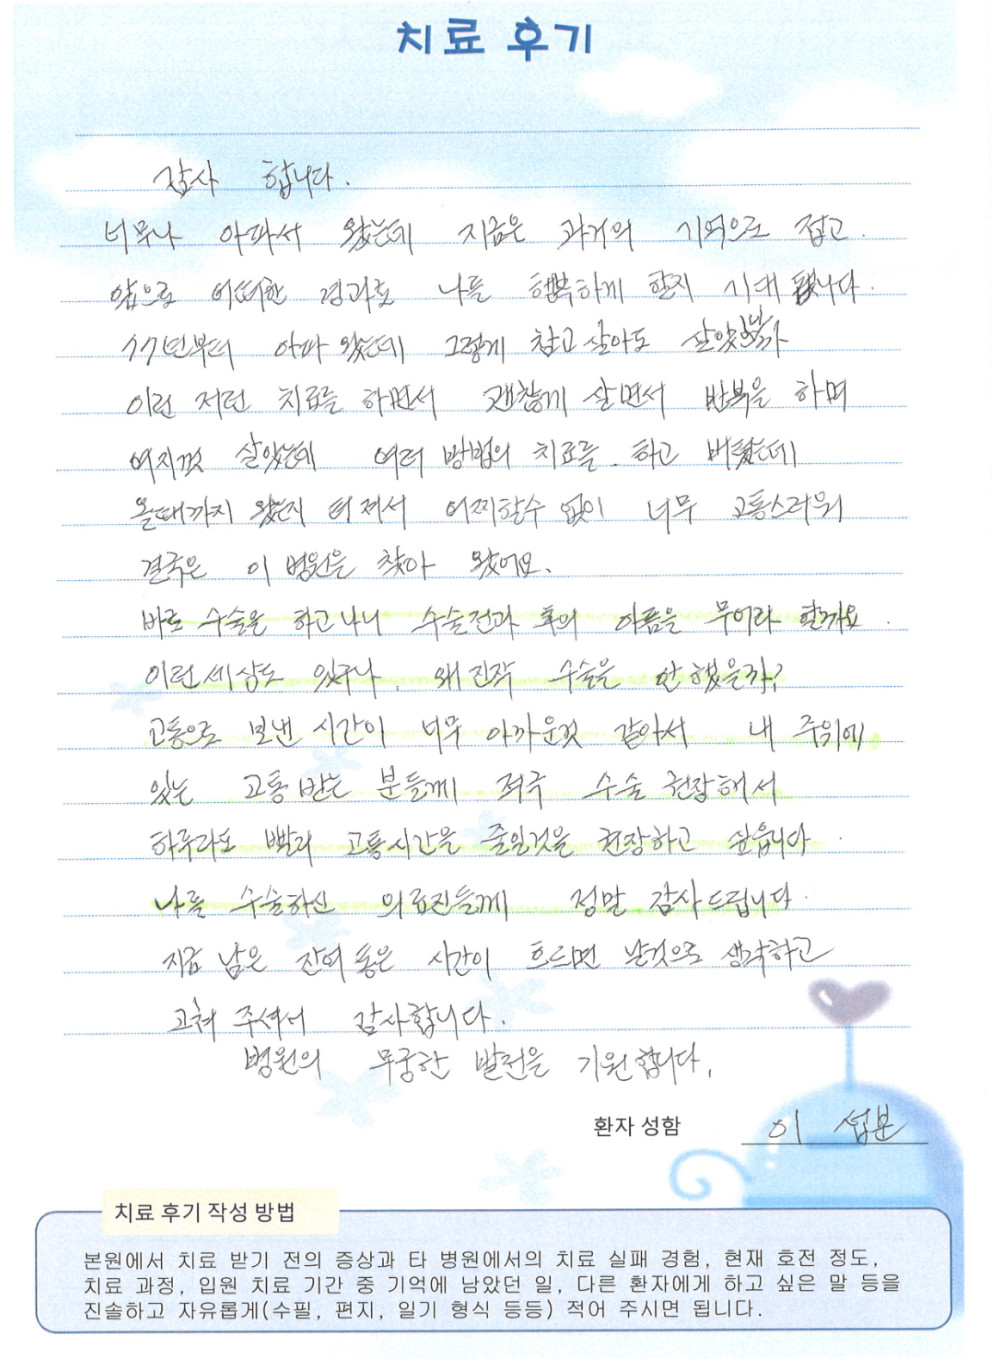 치료 후기
감사 합니다.
너무나 아파서 왔는데 지금은 과거의 기억으로 접고.
앞으로 어떠한 경과로 나를 행복하게 할지 기대 됩니다.
77년부터 아파 왔는데 그렇게 참고 살아도 살았
이런 저런 치료를 하면서 괜찮게 살면서 반복을 하며
여지껏 살았는데 여러 방법의 치료를. 하고 버텼는데
올때까지 왔는지 터져서 어찌할수 없이 너무 고통스러워
결국은 이 병원을 찾아 왔어요.
바로 수술을 하고나니 수술전과 후의 아픔을 무어라 할까요.
이런세상도 있구나. 왜진작 수술을 안했을까?
고통으로 보낸 시간이 너무 아까운것 같아서 내 주위에
있는 고통받는 분들께 적극 수술 권장해서
하루라도 빨리 고통시간을 줄일것을 권장하고 싶읍니다.
나를 수술하신 의료진들께 정말 감사드립니다.
지금 남은 잔여 통은 시간이 흐르면 날것으로 생각하고
고쳐 주셔서 감사합니다.
병원의 무궁한 발전을 기원합니다.
환자 성함 이 섭분
치료 후기 작성 방법
본원에서 치료 받기 전의 증상과 타 병원에서의 치료 실패 경험, 현재 호전 정도,
치료 과정, 입원 치료 기간 중 기억에 남았던 일, 다른 환자에게 하고 싶은 말 등을
진솔하고 자유롭게(수필, 편지, 일기 형식 등등) 적어 주시면 됩니다.